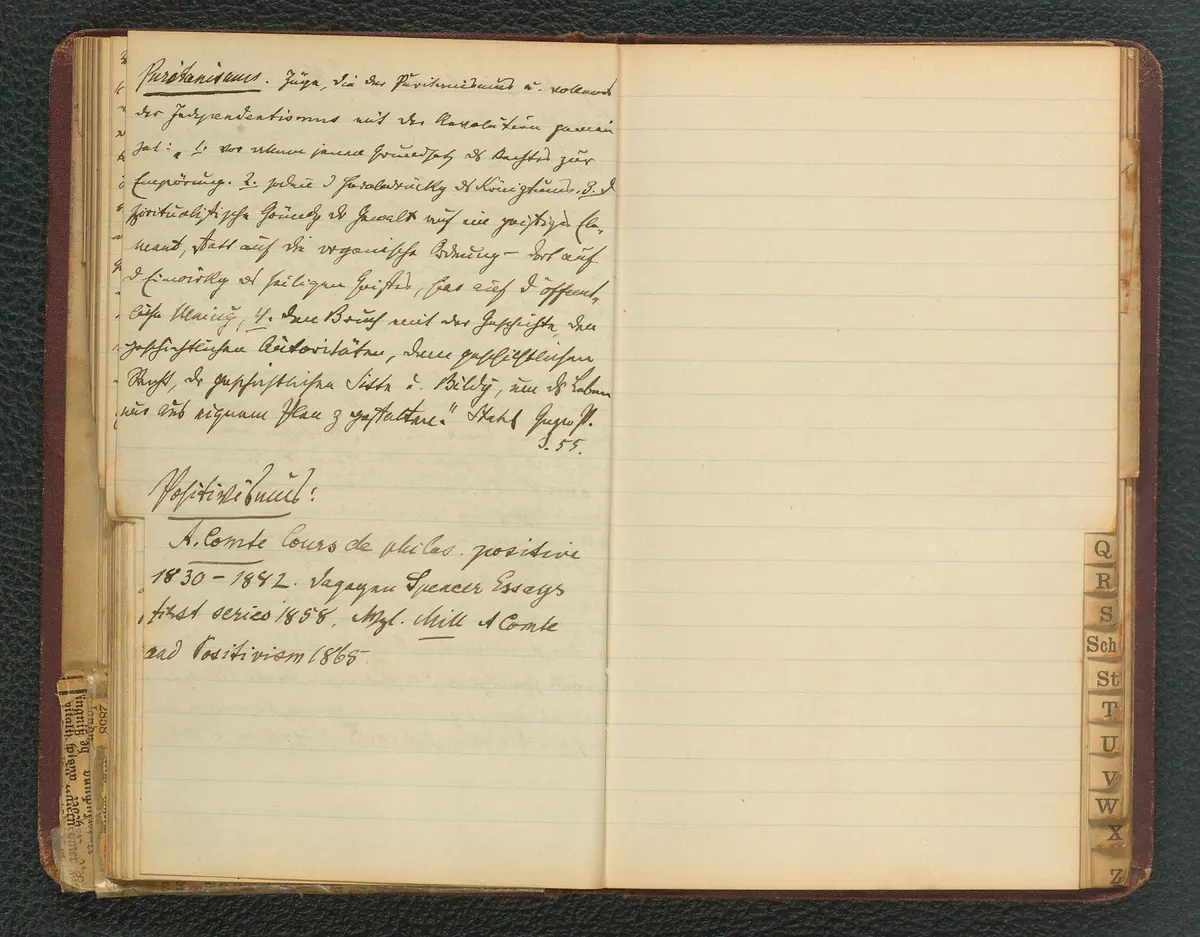 Puritanismus. Züge, die der Puritanismus u. vollends
der Independentismus mit der Revolution gemein
hat: „1. vor allem jenen Grundsatz des Rechtes zur
Empörung. 2. sodann d Herabdrückg des Königtums. 3. d
spiritualistische Gründg der Gewalt auf ein geistiges Ele-
ment, statt auf die organische Ordnung – dort auf
d Einwirkg des heiligen Geistes, hier auf d öffent-
liche Meinug, 4. den Bruch mit der Geschichte, den
geschichtlichen Autoritäten, dem geschichtlichen
Recht, der geschichtlichen Sitte u. Bildg, um das Leben
nur aus eignem Plan z gestalten." Stahl
S. 55.
Positivismus:
A. Comte Cours de philos. positive
1830 – 1842. Dagegen Spencer Essays
first series 1858. Vgl. Mill A Comte
and Positivism 1865
Q
R
S
Sch
St
T
U
V
W
X
Z